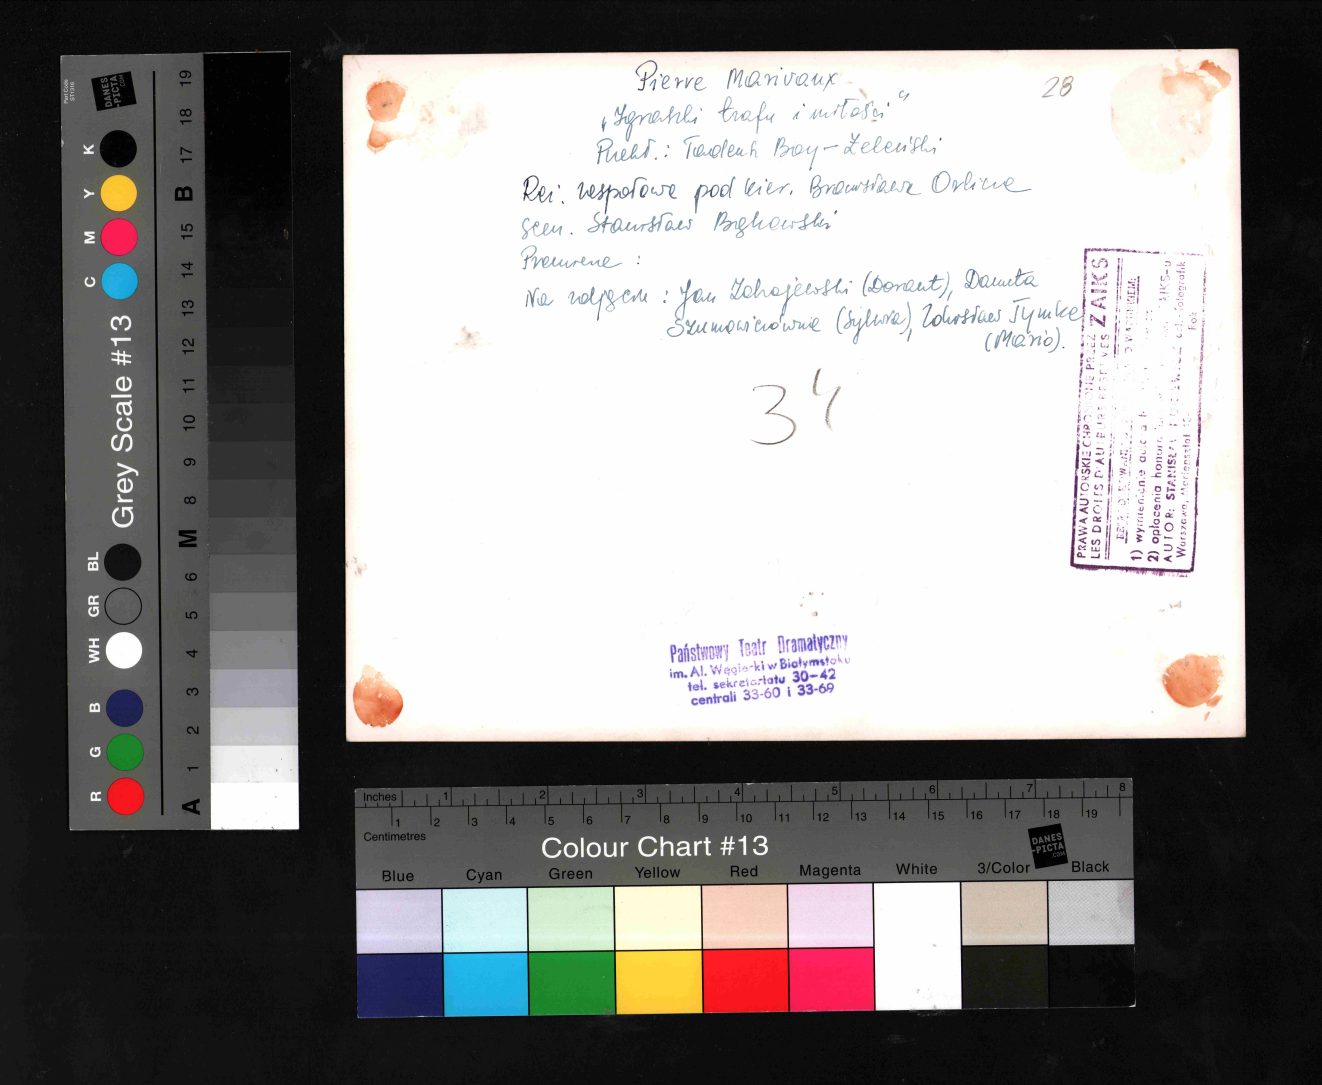 Pierre Marivaux
„Igraszki trafu i miłości"
Przekł.: Tadeusz Boy-Żeleński
Reż. zespołowa pod kier. Bronisława Orlicza
scen. Stanisław Bąkowski
Premiera :
Na zdjęciu : Jan Zdrojewski (Dorant), Danuta
Szumowiczówna (Sylwia), Zdzisław Tymke
(Mario).
28
34
PRAWA AUTORSKIE CHRONIONE PRZEZ ZAIKS
LES DROITS D'AUTEURS RESERVES
1) wymienienie
2) opłacenia honor
AUTOR: STANISŁAW
Warszawa, Mariensztat
fotografik
Państwowy Teatr Dramatyczny
im. Al. Węgierki w Białymstoku
tel. sekretariatu 30-42
centrali 33-60 i 33-69
Part Code
ST1316
DANES
-PICTA
.COM
Grey Scale #13
R G B WH GR BL C M Y K
A 1 2 3 4 5 6 M 8 9 10 11 12 13 14 15 B 17 18 19
Inches 1 2 3 4 5 6 7 8
Centimetres 1 2 3 4 5 6 7 8 9 10 11 12 13 14 15 16 17 18 19
Colour Chart #13
DANES
-PICTA
.COM
Blue Cyan Green Yellow Red Magenta White 3/Color Black